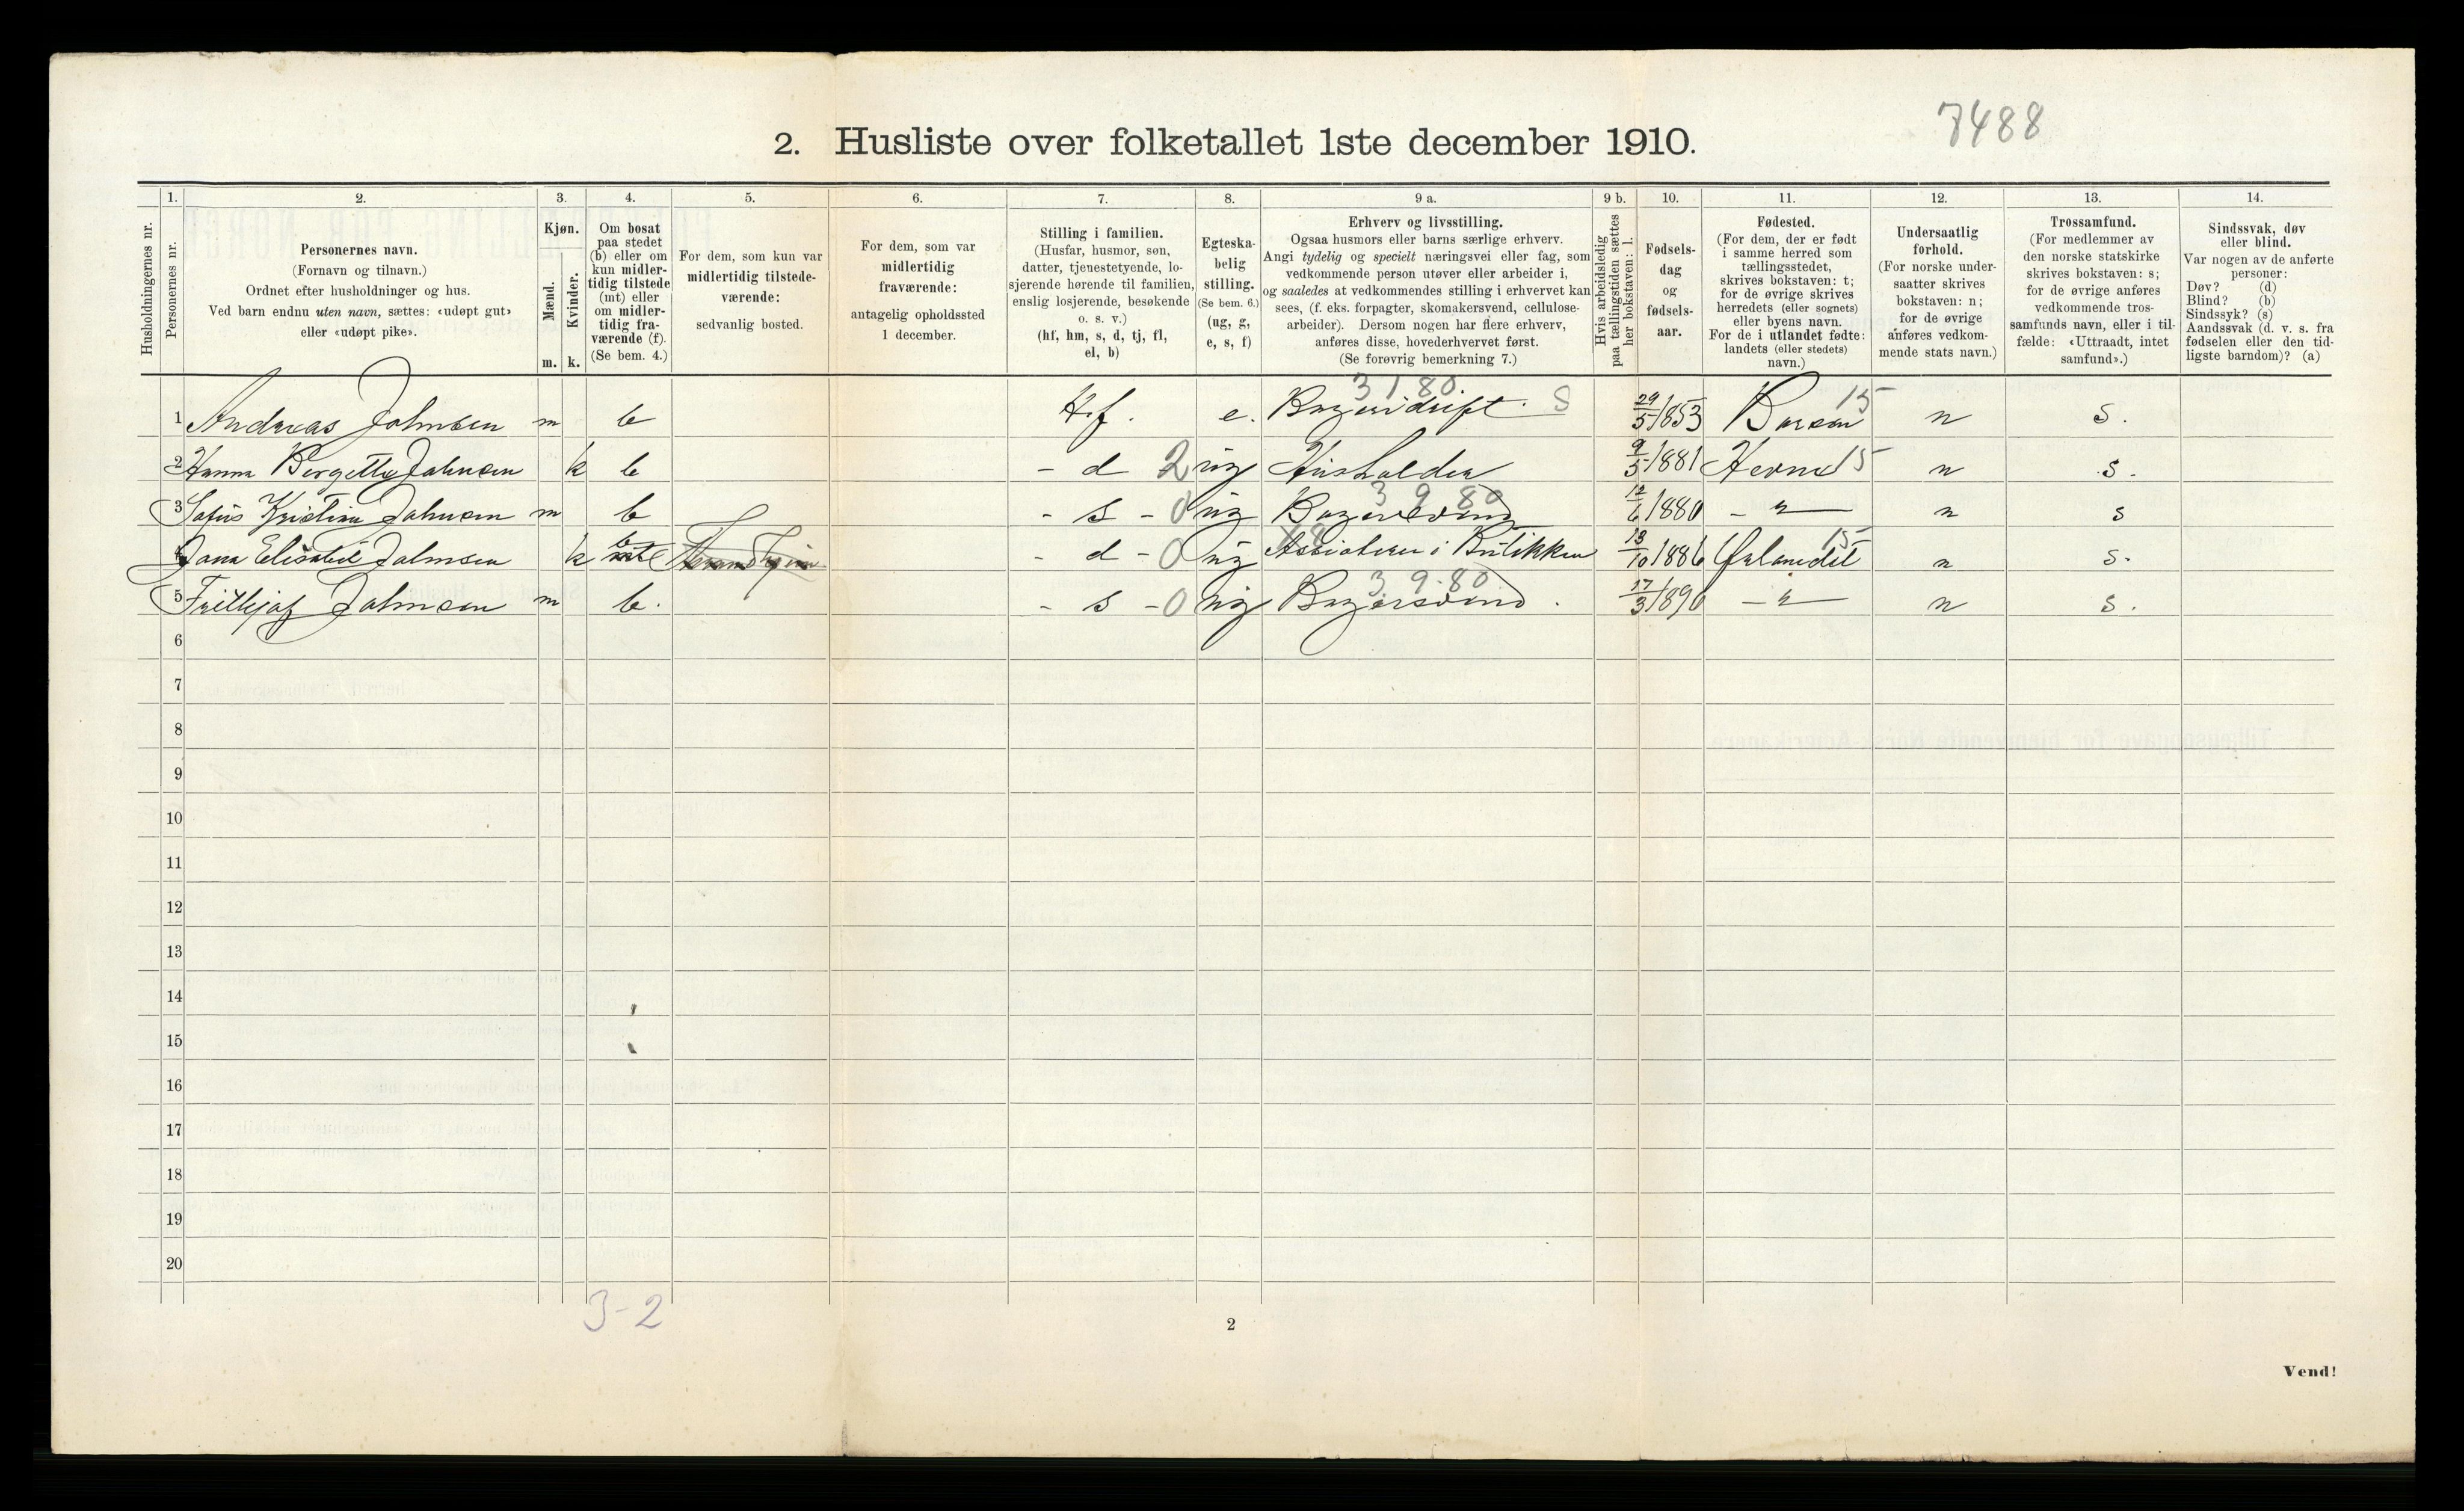 7488
2. Husliste over folketallet 1ste december 1910.
Husholdningernes nr.
1.
Personernes nr.
2.
Personernes navn.
(Fornavn og tilnavn.)
Ordnet efter husholdninger og hus.
Ved barn endnu uten navn, sættes: «udøpt gut»
eller «udøpt pike».
3.
Kjøn.
Mænd.
Kvinder.
m. k.
4.
Om bosat
paa stedet
(b) eller om
kun midler-
tidig tilstede
(mt) eller
om midler-
tidig fra-
værende (f).
(Se bem. 4.)
5.
For dem, som kun var
midlertidig tilstede-
værende:
sedvanlig bosted.
6.
For dem, som var
midlertidig
fraværende:
antagelig opholdssted
1 december.
7.
Stilling i familien.
(Husfar, husmor, søn,
datter, tjenestetyende, lo-
sjerende hørende til familien,
enslig losjerende, besøkende
o. s. v.)
(hf, hm, s, d, tj, fl,
el, b)
8.
Egteska-
belig
stilling.
(Se bem. 6.)
(ug, g,
e, s, f)
9 a.
Erhverv og livsstilling.
Ogsaa husmors eller barns særlige erhverv.
Angi tydelig og specielt næringsvei eller fag, som
vedkommende person utøver eller arbeider i,
og saaledes at vedkommendes stilling i erhvervet kan
sees, (f. eks. forpagter, skomakersvend, cellulose-
arbeider). Dersom nogen har flere erhverv,
anføres disse, hovederhvervet først.
(Se forøvrig bemerkning 7.)
9 b.
Hvis arbeidsledig
paa tællingstiden sættes
her bokstaven: l.
10.
Fødsels-
dag
og
fødsels-
aar.
11.
Fødested.
(For dem, der er født
i samme herred som
tællingsstedet,
skrives bokstaven: t;
for de øvrige skrives
herredets (eller sognets)
eller byens navn.
For de i utlandet fødte:
landets (eller stedets)
navn.)
12.
Undersaatlig
forhold.
(For norske under-
saatter skrives
bokstaven: n;
for de øvrige
anføres vedkom-
mende stats navn.)
13.
Trossamfund.
(For medlemmer av
den norske statskirke
skrives bokstaven: s;
for de øvrige anføres
vedkommende tros-
samfunds navn, eller i til-
fælde: «Uttraadt, intet
samfund».)
14.
Sindssvak, døv
eller blind.
Var nogen av de anførte
personer:
Døv? (d)
Blind? (b)
Sindssyk? (s)
Aandssvak (d. v. s. fra
fødselen eller den tid-
ligste barndom)? (a)
1 Andreas Johnsen m b H.f. e. Bageridrift. 3180. S 29/5 1853 15 n s.
2 Hanna Bergette Johnsen k b - d 2 ug Husholder 9/5 1881 Hevne 15 n s.
3 Sofus Kristian Johnsen m b - s - 0 ug Bagersvend 3 9 80 12/6 1880 - " - n s
4 Jana Elisabet Johnsen k b mt Trondhjem - d - 0 ug i Butikken 13/10 1886 15 n s.
5 Frithjof Johnsen m b. - s - 0 ug Bagersvend. 3 9.80 17/3 1890 - " - n s.
6
7
8
9
10
11
12
13
14
15
16
17
18
19
20
3-2
2
Vend!